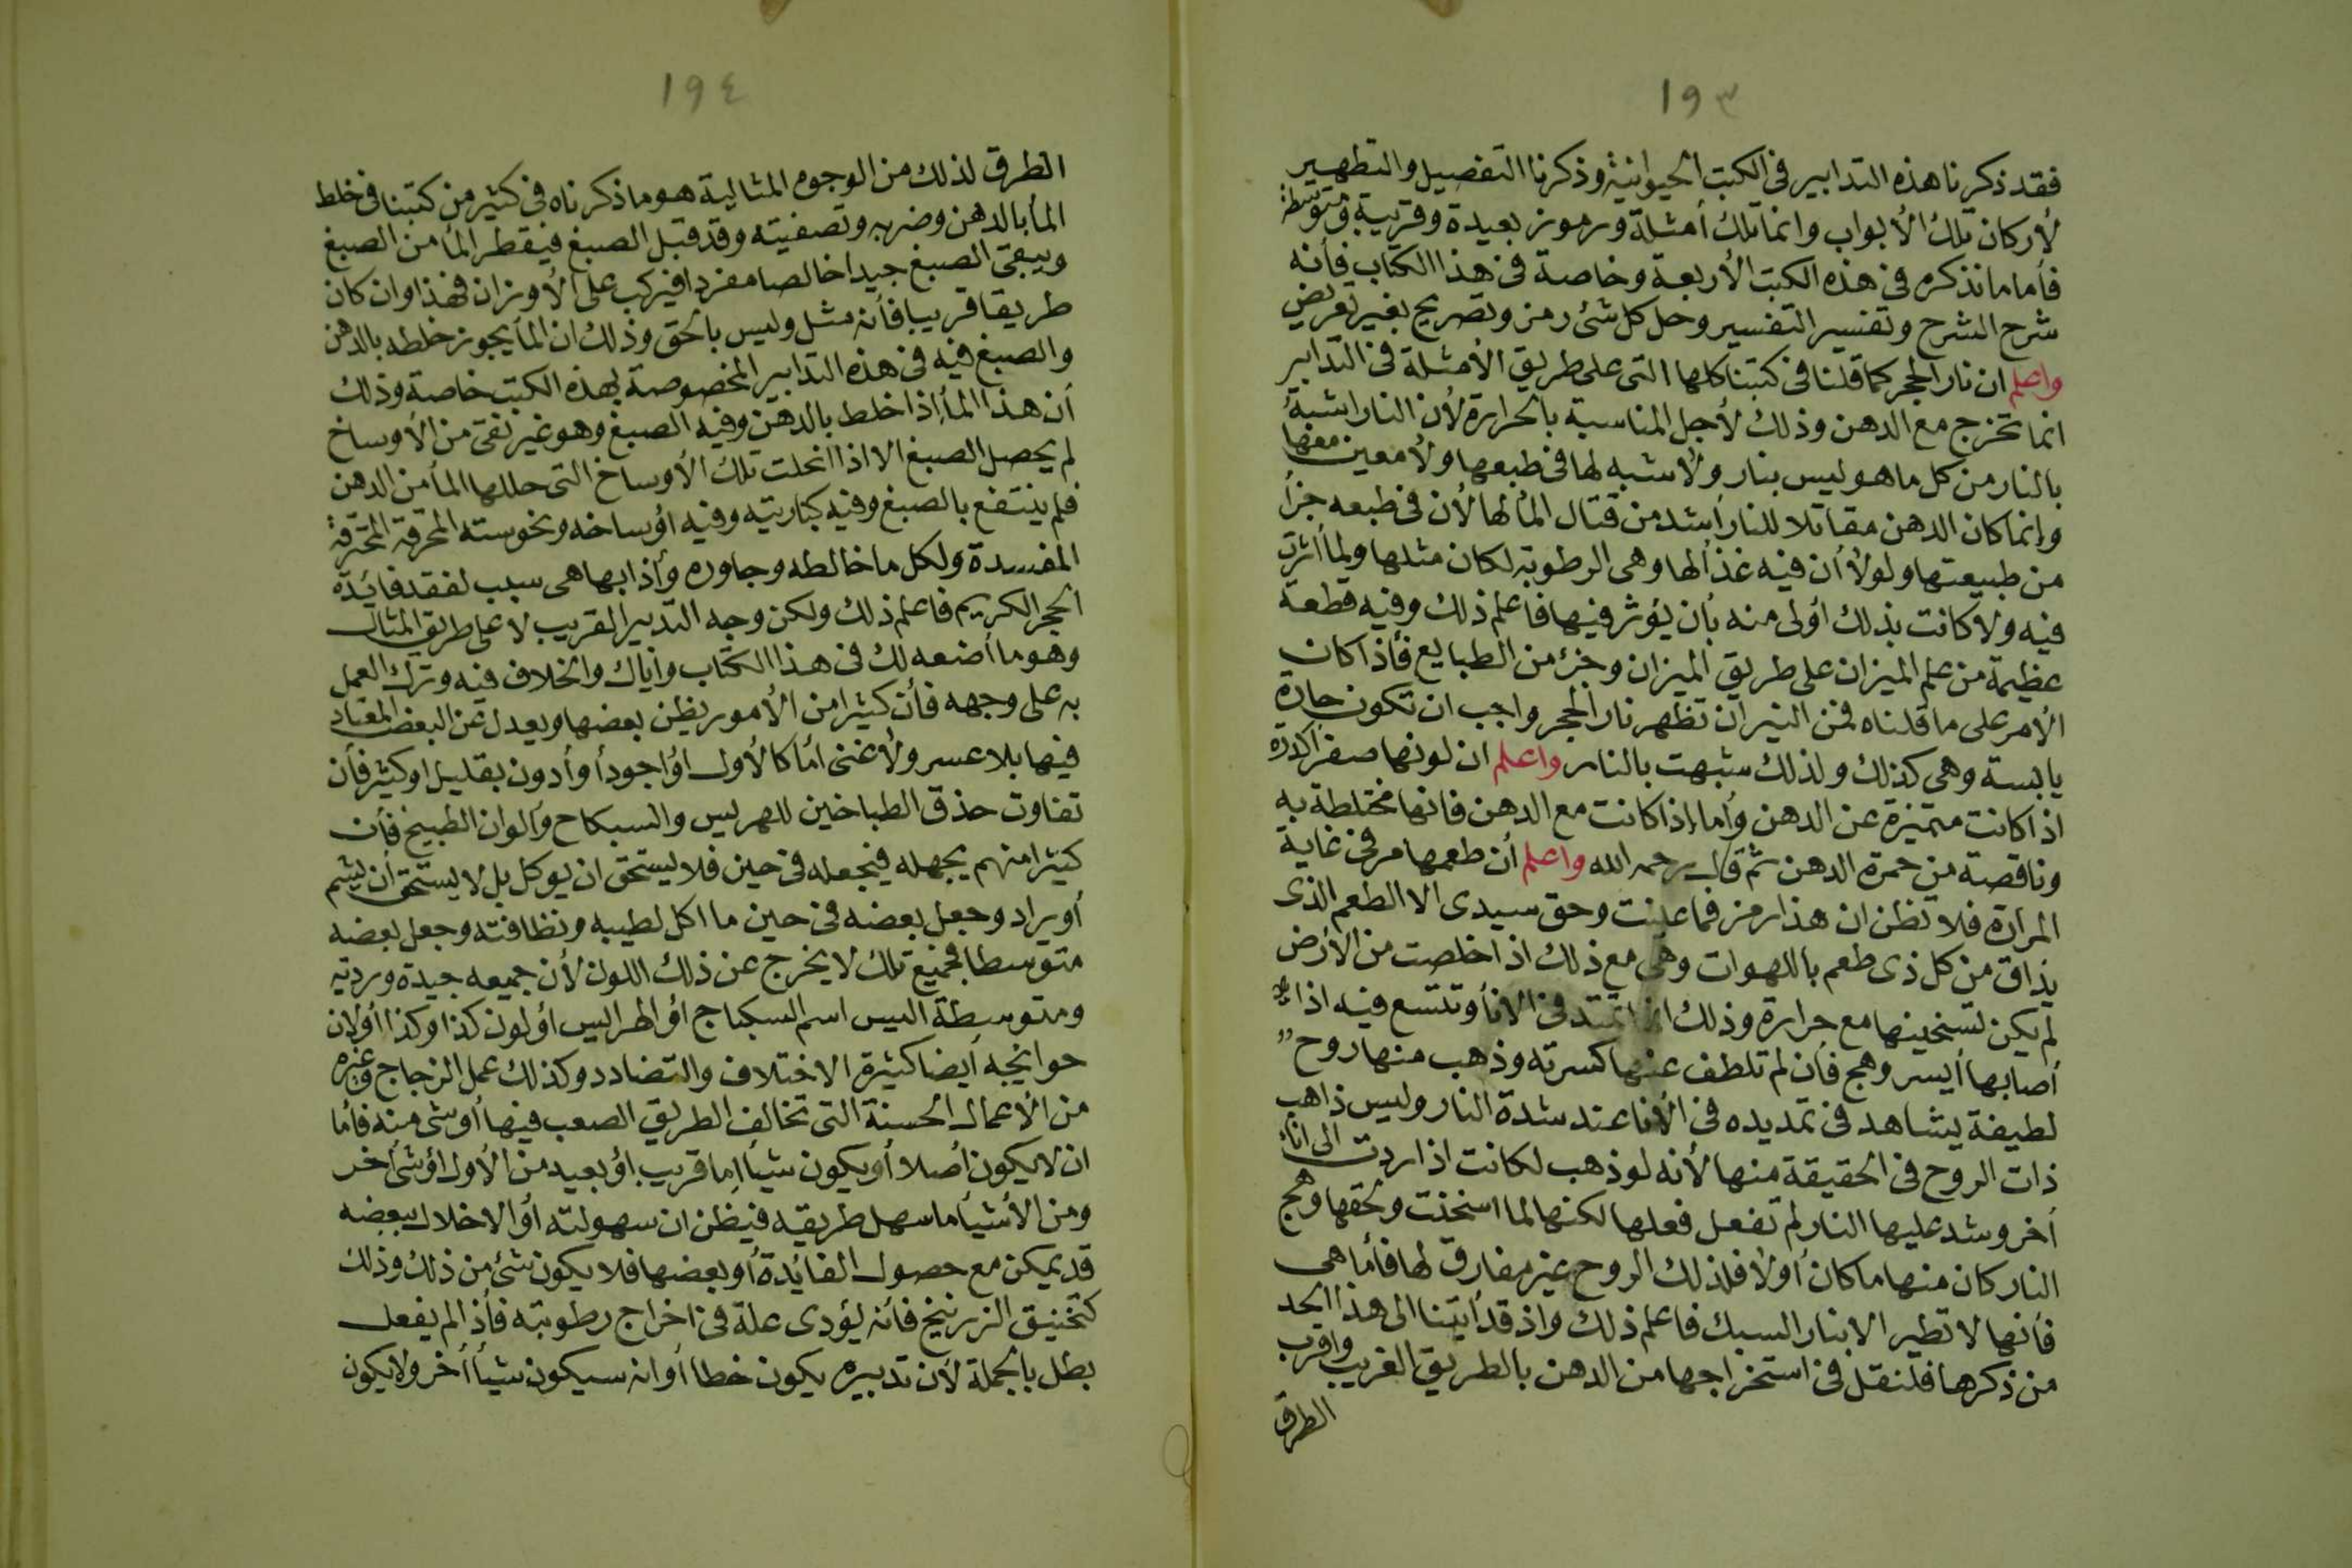 ١٩٣
فقد ذكرنا هذه التدابير فى الكتب الحيوانية وذكرنا التفصيل والتطهير
لأركان تلك الأبواب وانما تلك أمثلة ورموز بعيدة وقريبة ومتوسطة
فأما ما نذكره فى هذه الكتب الأربعة وخاصة فى هذا الكتاب فأنه
شرح الشرح وتفسير التفسير وحل كل شئ رمز وتصريح بغير تعريض
واعلم ان نار الحجر كما قلنا فى كتبنا كلها التى على طريق الأمثلة فى التدابير
انما تخرج مع الدهن وذلك لأجل المناسبة بالحرارة لأن النار اشبه
بالنار من كل ما هو ليس بنار ولا شبه لها فى طبعها ولا معين معها
وإنما كان الدهن مقاتلا للنار أشد من قتال المأ لها لأن فى طبعه جزأ
من طبيعتها ولولا أن فيه غذأ لها وهى الرطوبة لكان مثلها ولما أثرت
فيه ولا كانت بذلك أولى منه بأن يؤثر فيها فاعلم ذلك وفيه قطعة
عظيمة من علم الميزان على طريق الميزان وجزء من الطبايع فأذا كان
الأمر على ما قلناه فمن النيران تظهر نار الحجر واجب ان تكون حارة
يابسة وهى كذلك ولذلك شبهت بالنار واعلم ان لونها صفرا كدره
اذا كانت متميزة عن الدهن وأما إذا كانت مع الدهن فانها مختلطة به
وناقصة من حمرة الدهن ثم قال رحمه الله واعلم أن طعمها مر فى غاية
المرارة فلا تظن ان هذا رمز فما عنيت وحق سيدى الا الطعم الذى
يذاق من كل ذى طعم باللهوات وهى مع ذلك اذا خلصت من الأرض
لم يكن تسخينها مع حرارة وذلك انها تمتد فى الانأ وتتسع فيه اذا
أصابها أيسر وهج فأن لم تلطف عنها كسرته وذهب منها روح
لطيفة يشاهد فى تمديده فى الأنا عند شدة النار وليس ذاهب
ذات الروح فى الحقيقة منها لأنه لو ذهب لكانت اذا ردت الى اناء
أخر وشد عليها النار لم تفعل فعلها لكنها لما اسخنت ولحقها وهج
النار كان منها ما كان أولا فلذلك الروح غير مفارق لها فأما هى
فأنها لا تطير الا بنار السبك فاعلم ذلك واذ قد أتينا الى هذا الحد
من ذكرها فلنقل فى استخراجها من الدهن بالطريق القريب واقرب
الطرق
١٩٤
الطرق لذلك من الوجوه المثالية هو ما ذكرناه فى كثير من كتبنا فى خلط
المأ بالدهن وضربه وتصفيته وقد قبل الصبغ فيقطر المأ من الصبغ
ويبقى الصبغ جيدا خالصا مفردا فيركب على الأوزان فهذا وان كان
طريقا قريبا فأنه مثل وليس بالحق وذلك ان المأ يجوز خلطه بالدهن
والصبغ فيه فى هذه التدابير المخصوصة بهذه الكتب خاصة وذلك
أن هذا المأ إذا خلط بالدهن وفيه الصبغ وهو غير نقى من الأوساخ
لم يحصل الصبغ الا اذا انحلت تلك الأوساخ التى حللها المأ من الدهن
فلم ينتفع بالصبغ وفيه كباريته وفيه اؤساخه ونحوسته المحرقة المحترقة
المفسدة ولكل ما خالطه وجاوره وأذابها هى سبب لفقد فائدة
الحجر الكريم فاعلم ذلك ولكن وجه التدبير القريب لا على طريق المثال
وهو ما أضعه لك فى هذا الكتاب واياك والخلاف فيه وترك العمل
به على وجهه فأن كثيرا من الأمور يظن بعضها ويعدل عن البعض المعتاد
فيها بلا عسر ولا غنى أما كالأول أؤ اجود أوأدون بقليل اوكثير فأن
تفاوت حذق الطباخين للهريس والسبكاح وألوان الطبيخ فأن
كثيرا منهم يجهله فيجعله فى حين فلا يستحق ان يوكل بل لا يستحق أن يشم
أو يراد وجعل بعضه فى حين ما اكل لطيبه ونظافته وجعل بعضه
متوسطا فجميع تلك لا يخرج عن ذلك اللون لأن جميعه جيدة ورديه
ومتوسطة اليس اسم السكباج أؤ الهرايس أؤ لون كذا وكذا أولان
حوايجه أيضا كثيرة الاختلاف والتضادد وكذلك عمل الزجاج وغيره
من الأعمال الحسنة التى تخالف الطريق الصعب فيها أو شى منه فأما
ان لا يكون أصلا أو يكون شيأ إما قريب أؤ بعيد من الأول اؤ شى أخر
ومن الأشيأ ما سهل طريقه فيظن ان سهولته أؤ الاخلال ببعضه
قد يمكن مع حصول الفائدة أو بعضها فلا يكون شئ من ذلك وذلك
كتخنيق الزرنيخ فأنه يؤدى علة فى اخراج رطوبته فأذا لم يفعل
بطل بالجملة لأن تدبيره يكون خطا أوانه سيكون شيأ أخر ولا يكون